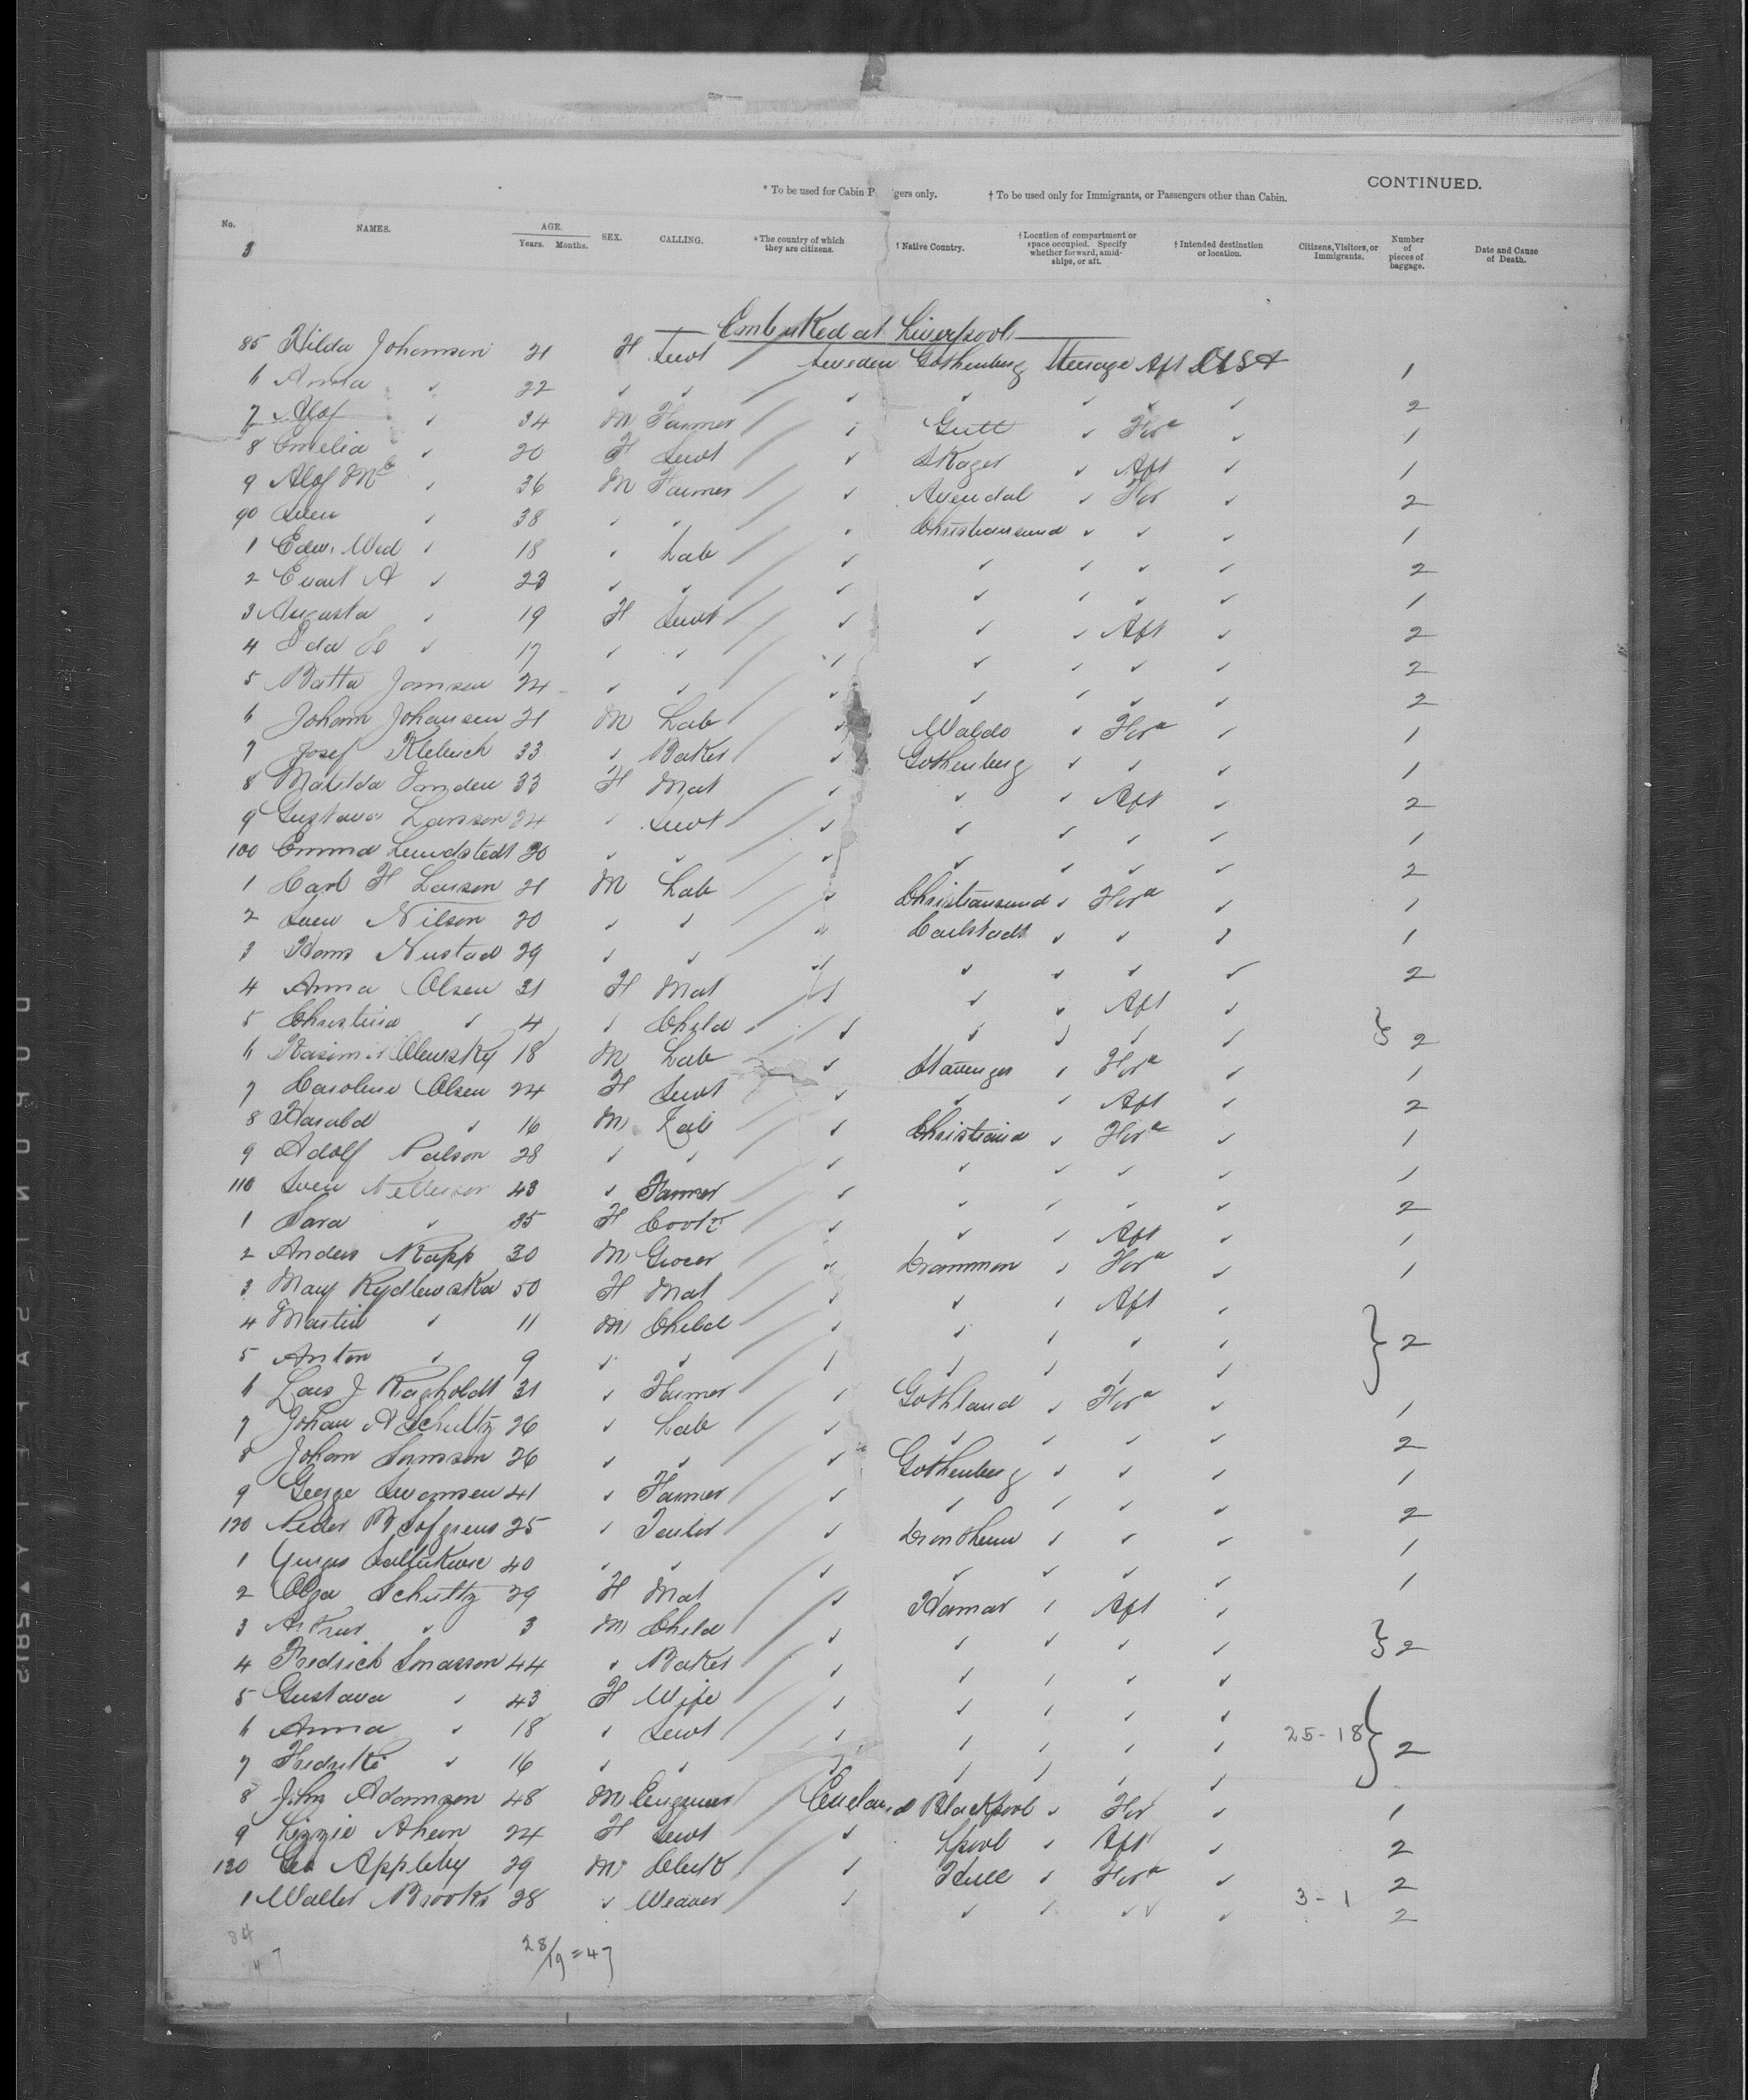 CONTINUED.
* To be used for Cabin P gers only. † To be used only for Immigrants, or Passengers other than Cabin.
No. NAMES. AGE. Years. Months. SEX. CALLING. * The country of which they are citizens. † Native Country. † Location of compartment or space occupied. Specify whether forward, amidships, or aft. † Intended destination or location. Citizens, Visitors, or Immigrants. Number of pieces of baggage. Date and Cause of Death.
3
Embarked at Liverpool
85 Hilda Johannson 21 F Servt Sweden Gothenberg Steerage Aft USA 1
6 Anna " 22 " " " " " " " 2
7 Alof " 34 M Farmer " " For'd " 1
8 Emelia " 20 F Servt " Skager " Aft " 1
9 Alof " 36 M Farmer " Arendal " For " 2
90 Sven " 38 " " " Christiansund " " " 1
1 Edw. " 18 " Lab " " " " " 2
2 A " 23 " " " " " " " 1
3 Augusta " 19 F Servt " " " Aft " 2
4 Ida " 17 " " " " " " " 2
5 Batta Jomsen 24 " " " " " " " 2
6 Johann Johansen 21 M Lab " Waldo " For'd " 1
7 Josef 33 " Baker " Gothenberg " " " 1
8 Matilda 33 F Mat " " " Aft " 2
9 Gustava Larsson 24 " Servt " " " " " 1
100 Emma Lundstedt 20 " " " " " " " 2
1 Carl F Larsen 21 M Lab " Christiansund " For'd " 1
2 Sven Nilson 20 " " " Carlstadt " " " 1
3 Hans Nustad 29 " " " " " " " 2
4 Anna Olsen 31 F Mat " " " Aft "
5 Christina " 4 " Child " " " " " } 2
6 18 M Lab " Stavenger " For'd " 1
7 Caroline Olsen 24 F Servt " " " Aft " 2
8 Harald " 16 M Lab " Christiania " For'd " 1
9 Adolf Palson 28 " " " " " " " 1
110 Sven 43 " Farmer " " " " " 2
1 Sara " 35 F Cook " " " Aft " 1
2 Anders Rapp 30 M Grocer " Drammen " For'd " 1
3 Mary Rydlewska 50 F Mat " " " Aft "
4 Martin " 11 M Child " " " " " } 2
5 Anton " 9 " " " " " " "
6 Lars J Ragholdt 31 " Farmer " Gothland " For'd " 1
7 Johan A Schultz 26 " Lab " " " " " 2
8 Johan 26 " " " Gothenberg " " " 1
9 George Swansen 41 " Farmer " " " " " 2
120 Peder B Lofgrens 25 " Tailor " Drontheim " " " 1
1 40 " " " " " " " 1
2 Olga Schultz 29 F Mat " Hamar " Aft "
3 " 3 M Child " " " " " } 2
4 Fredrich Jonasson 44 " Baker " " " " "
5 Gustava " 43 F Wife " " " " "
6 Anna " 18 " Servt " " " " " 25-18 } 2
7 " 16 " " " " " " "
8 John Adamson 48 M Engineer England Blackpool " For " 1
9 Lizzie Ahern 24 F Servt " Lpool " Aft " 2
130 Geo Appleby 29 M Clerk " Hull " For'd " 2
1 Walter Brooks 28 " Weaver " " " " " 3-1 2
84
47
28/19=47